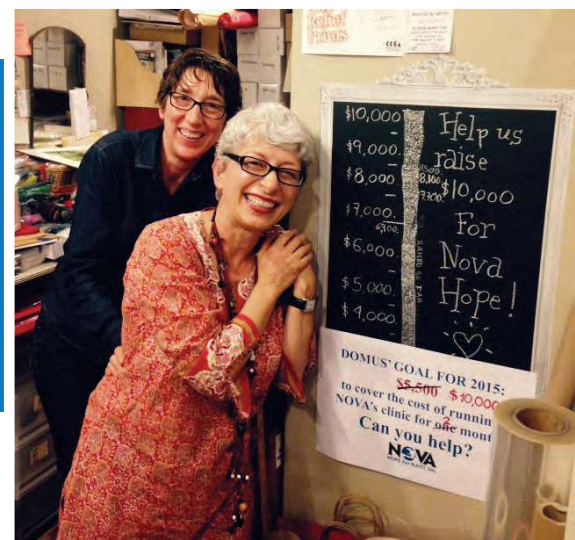 Relief
Prints
$10,000
$9,000
$8,000
$7,000
6,700.
$6,000
$5,000
$4,000
8,100
7,700.
RAISED SO FAR
Help us
raise
$10,000
For
Nova
Hope!
DOMUS' GOAL FOR 2015:
$5,500 $10,000
to cover the cost of runnin
NOVA's clinic for one 2 mont
Can you help?
NOVA
HOPE for HAITI, Inc.